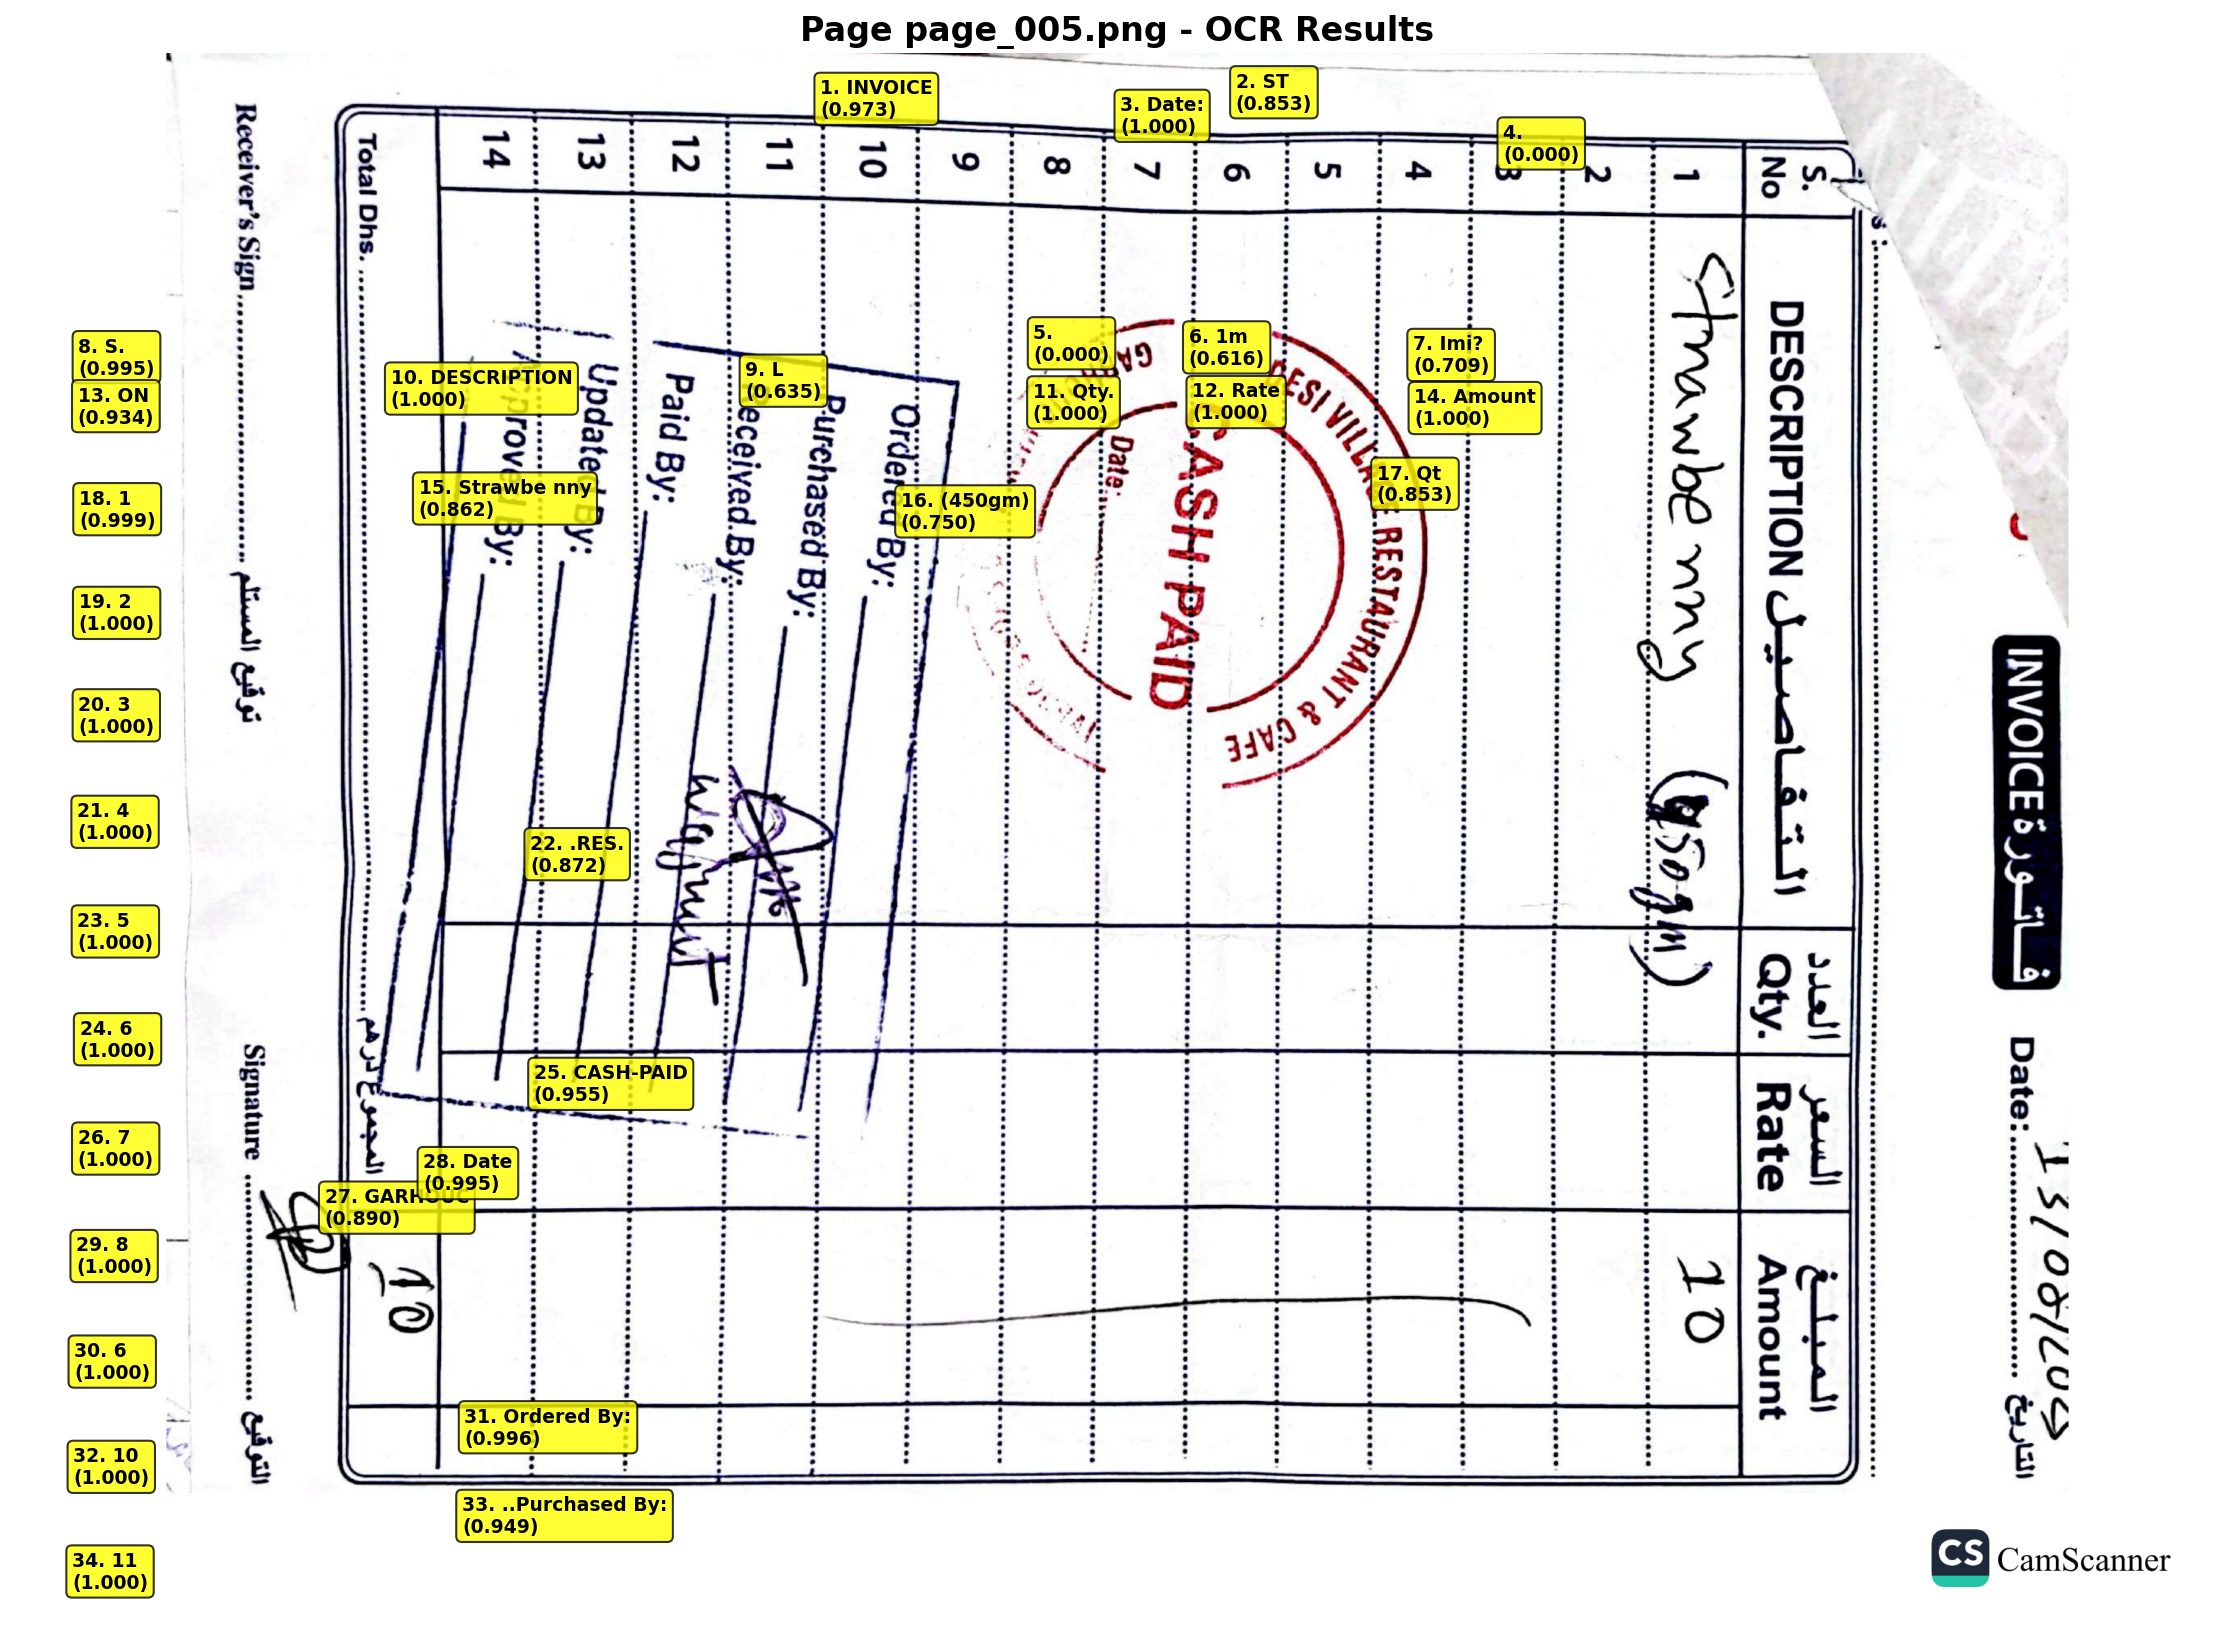 Page page_005.png - OCR Results
1. INVOICE
(0.973)
2. ST
(0.853)
3. Date:
(1.000)
4.
(0.000)
5.
(0.000)
6. 1m
(0.616)
7. Imi?
(0.709)
8. S.
(0.995)
9. L
(0.635)
10. DESCRIPTION
(1.000)
11. Qty.
(1.000)
12. Rate
(1.000)
13. ON
(0.934)
14. Amount
(1.000)
15. Strawbe nny
(0.862)
16. (450gm)
(0.750)
17. Qt
(0.853)
18. 1
(0.999)
19. 2
(1.000)
20. 3
(1.000)
21. 4
(1.000)
22. .RES.
(0.872)
23. 5
(1.000)
24. 6
(1.000)
25. CASH-PAID
(0.955)
26. 7
(1.000)
27. GARHOUC
(0.890)
28. Date
(0.995)
29. 8
(1.000)
30. 6
(1.000)
31. Ordered By:
(0.996)
32. 10
(1.000)
33. ..Purchased By:
(0.949)
34. 11
(1.000)
INVOICE فاتورة
Date: التاريخ
S. No
DESCRIPTION التفاصيل
العدد Qty.
السعر Rate
المبلغ Amount
1 Strawbe nny (450gm) 10
2
3
4
5
6
7
8
9
10
11
12
13
14
DESI VILLAGE RESTAURANT & CAFE
CASH PAID
Date:
Ordered By:
Purchased By:
Received By:
Paid By:
Updated By:
Approved By:
Total Dhs. المجموع درهم 10
Receiver's Sign توقيع المستلم
Signature التوقيع
CS CamScanner